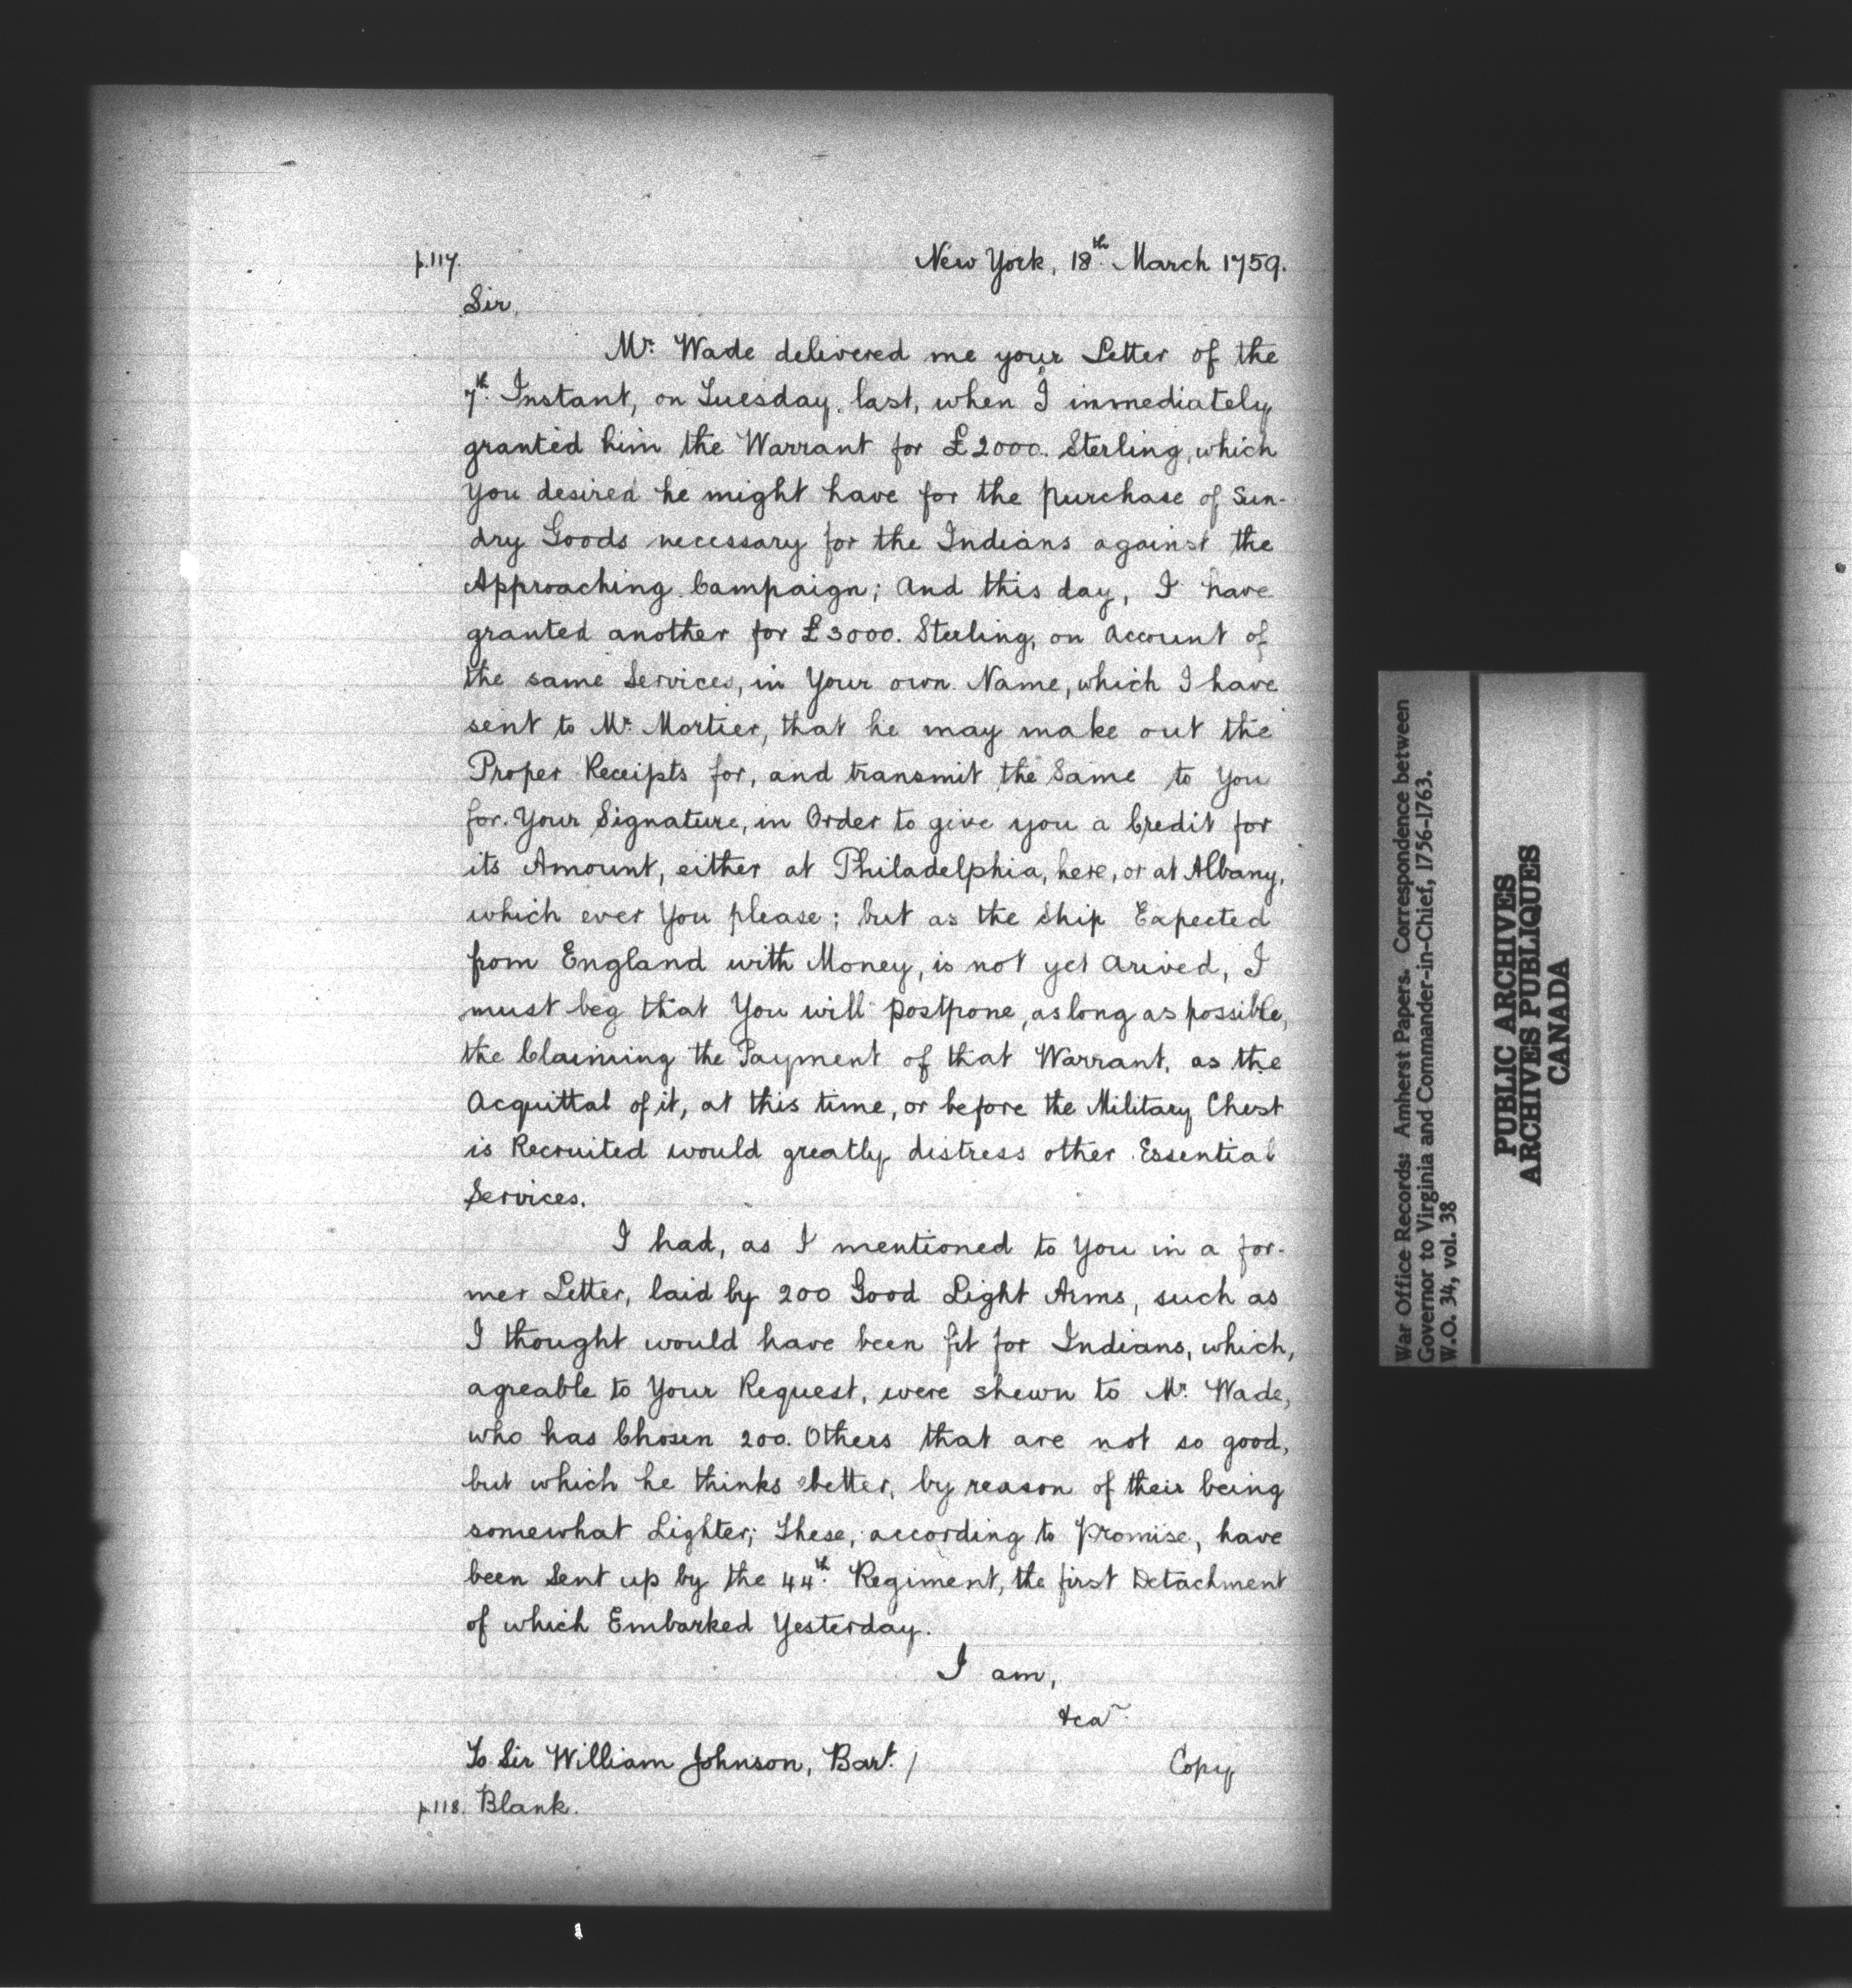 p.117.
New York, 18th. March 1759.
Sir,
Mr. Wade delivered me your Letter of the
7th. Instant, on Tuesday last, when I immediately
granted him the Warrant for £2000. Sterling, which
You desired he might have for the purchase of Sun-
dry Goods necessary for the Indians against the
Approaching Campaign; And this day, I have
granted another for £3000. Sterling, on Account of
the same Services, in Your own Name, which I have
sent to Mr. Mortier, that he may make out the
Proper Receipts for, and transmit the Same to You
for Your Signature, in Order to give you a Credit for
its Amount, either at Philadelphia, here, or at Albany,
which ever You please; but as the Ship Expected
from England with Money, is not yet Arived, I
must beg that You will postpone, as long as possible,
the Claiming the Payment of that Warrant, as the
Acquittal of it, at this time, or before the Military Chest
is Recruited would greatly distress other Essential
Services.
I had, as I mentioned to You in a for-
mer Letter, laid by 200 Good Light Arms, such as
I thought would have been fit for Indians, which,
agreable to Your Request, were shewn to Mr. Wade,
who has Chosen 200. Others that are not so good,
but which he thinks better, by reason of their being
somewhat Lighter; These, according to Promise, have
been Sent up by the 44th. Regiment, the first Detachment
of which Embarked Yesterday.
I am,
&ca
To Sir William Johnson, Bart. /
Copy
p.118. Blank.
War Office Records: Amherst Papers. Correspondence between
Governor to Virginia and Commander-in-Chief, 1756-1763.
W.O. 34, vol. 38
PUBLIC ARCHIVES
ARCHIVES PUBLIQUES
CANADA